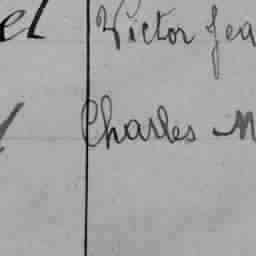 el Victor Jea
Charles M